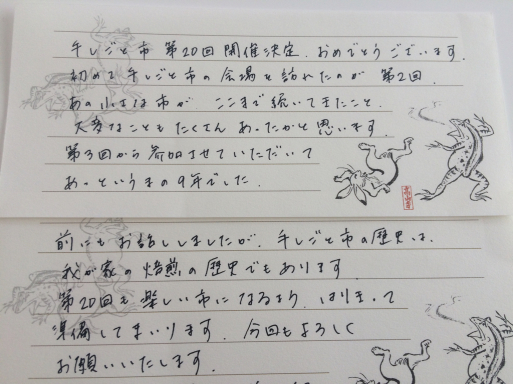 手しごと市 第20回 開催決定、おめでとうございます。
初めて手しごと市の会場を訪れたのが 第2回。
あの小さな市が、ここまで続いてきたこと、
大変なこともたくさんあったかと思います。
第3回から参加させていただいて
あっというまの9年でした。
前にもお話ししましたが、手しごと市の歴史は、
我が家の焙煎の歴史でもあります。
第20回も楽しい市になるよう、はりきって
準備してまいります。今回もよろしく
お願いいたします。